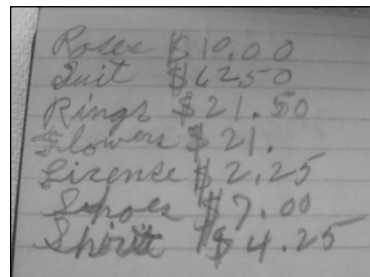 $10.00
Suit $62.50
Rings $21.50
Flowers $21.
Lisense $2.25
Shoes $7.00
Shirt $4.25